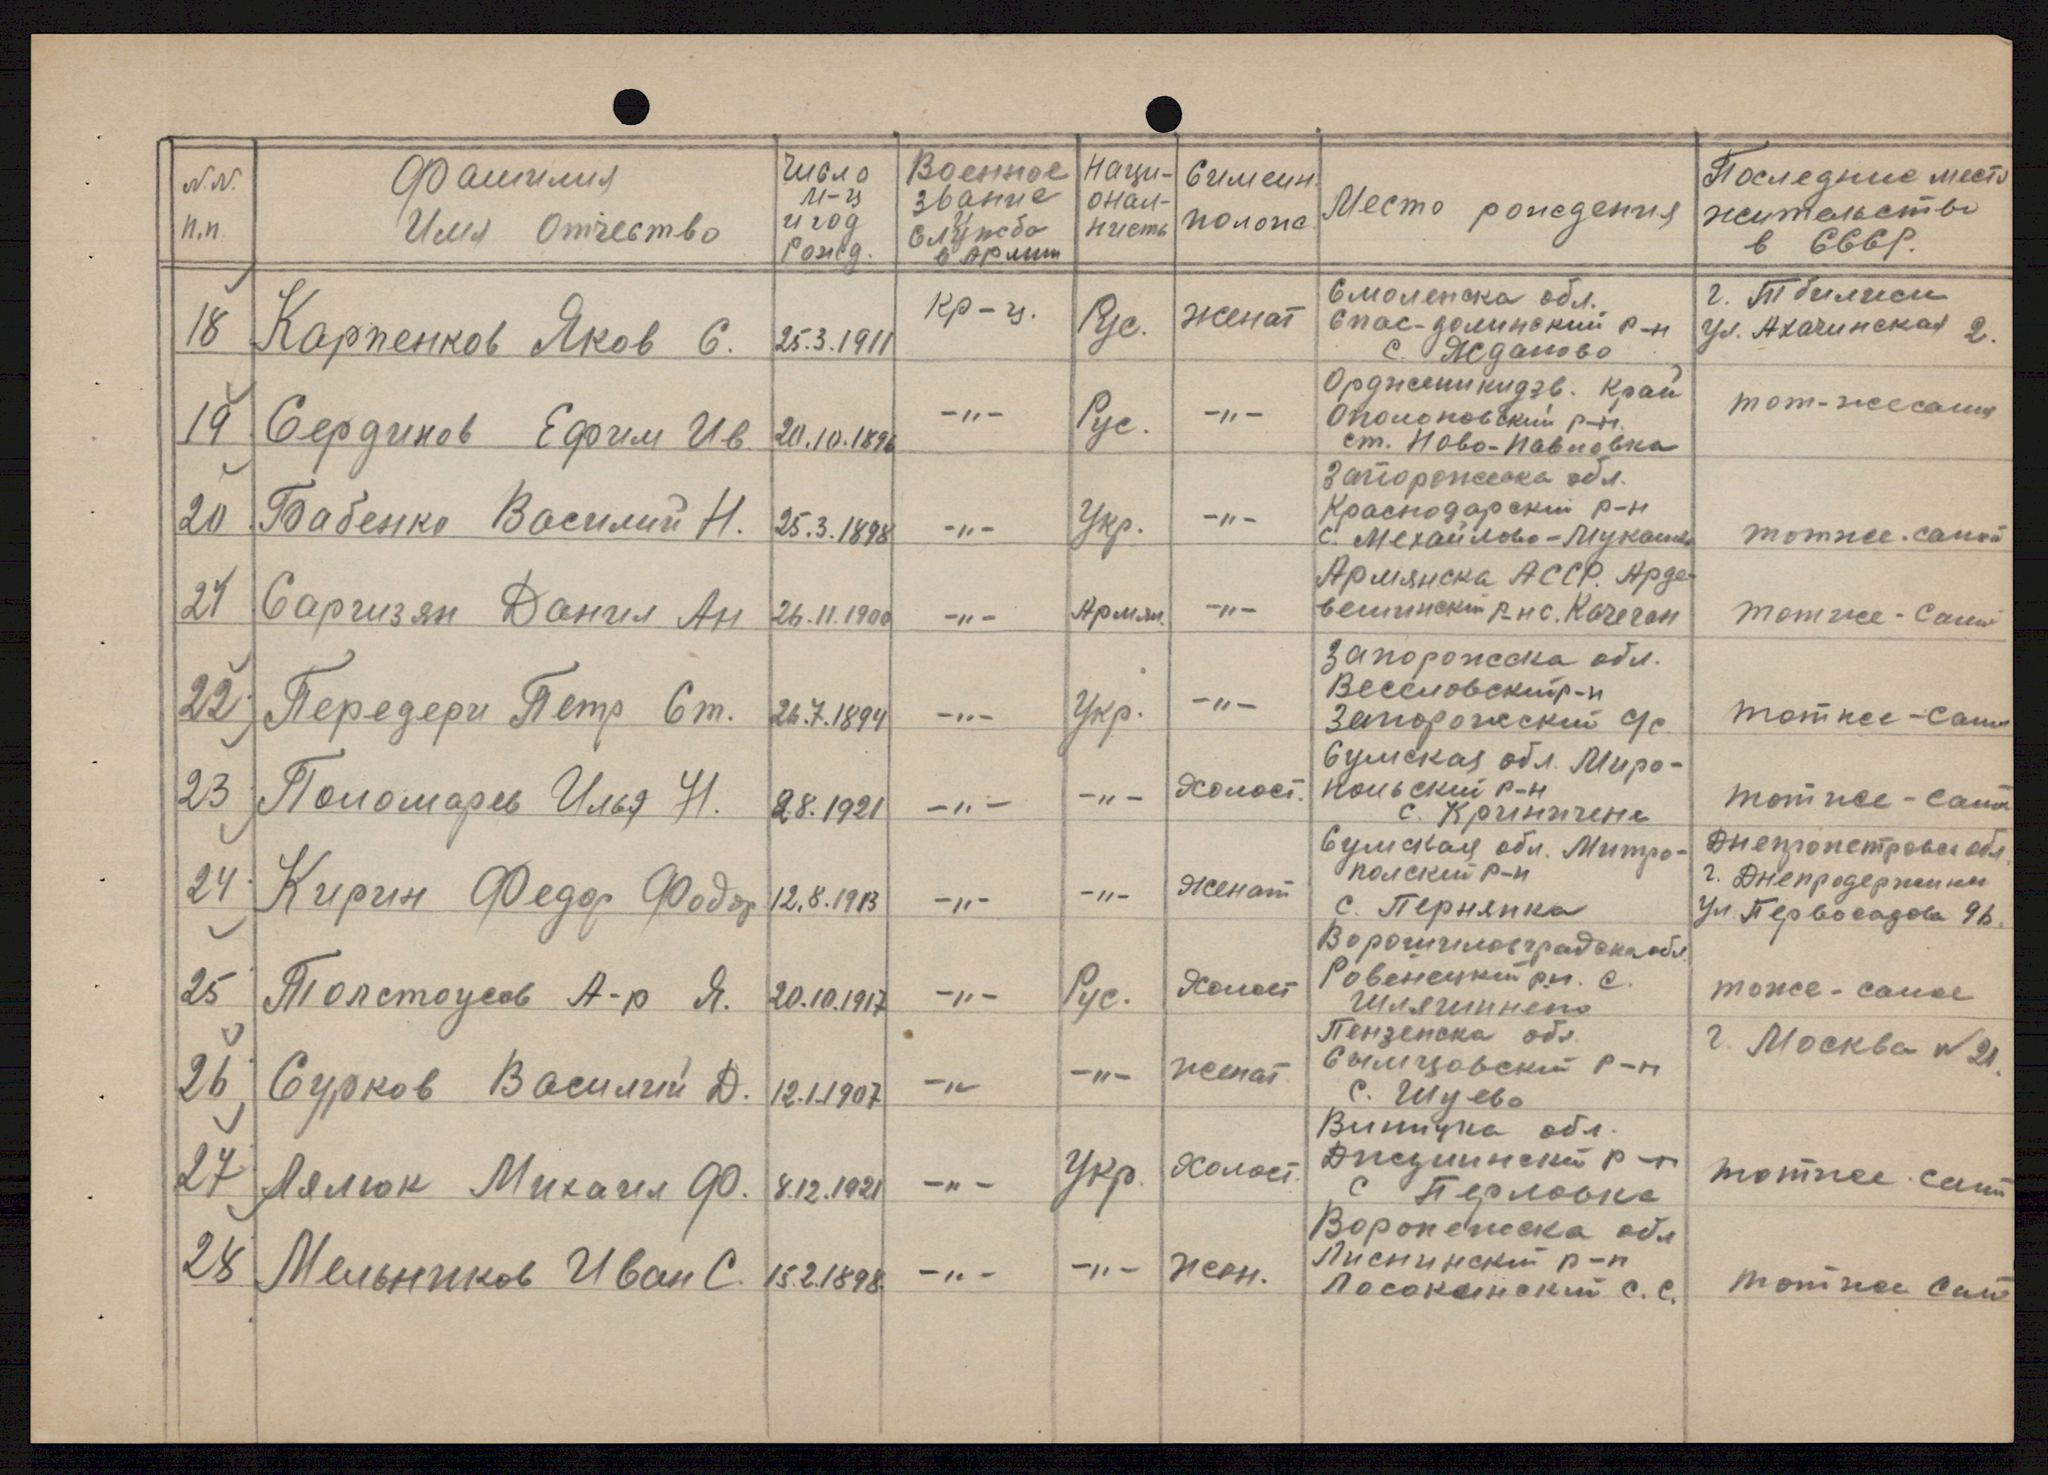 N.N. п.п
Фамилия Имя Отчество
Число м-ц и год рожд.
Военное звание Служба в Армии
Наци-онал-ность
Симеин. полож.
Место рождения
Последние место жительство в СССР.
18 Карпенков Яков С. 25.3.1911 кр-ц. Рус. женат
Смоленска обл.
Спас-долинский р-н
с. Жданово
г. Тбилиси
ул. Ахачинская 2.
19 Сердинов Ефим Ив. 20.10.1896 -"- Рус. -"-
Орджоникидзв. край
Ополоновский р-н.
ст. Ново-Павловка
тот-жесамы
20 Бабенко Василий Н. 25.3.1898 -"- Укр. -"-
Запорожска обл.
Краснодарский р-н
с. Мехайлово-
тотже-самой
21 Саргизян Данил Ан 26.11.1900 -"- Армян. -"-
Армянска АССР. Арде-
вешинский р-н с. Качеган
тотже-самы
22 Передери Петр Ст. 26.7.1894 -"- Укр. -"-
Запорожска обл.
Веселовский р-н
Запорожский с/с
тотже-самы
23 Пономарев Илья Н. 28.1921 -"- -"- Холост.
Сумская обл. Миро-
польский р-н
с. Криничене
тотже-самы
24 Кирин Федор Фодор 12.8.1913 -"- -"- Женат
Сумская обл. Митро-
полский р-н
с. Пернянка
Днепропетровск обл.
г. Днепродержинск
ул. Первосадова 96.
25 Толстоусов А-р Я. 20.10.1917 -"- Рус. Холост
Ворошиловградска обл.
Ровенецкий р.н. с.
тоже-самое
26 Сурков Василий Д. 12.1.1907 -"- -"- женат
Пензенска обл.
Сымцовский р-н
с. Шуево
г. Москва N 21.
27 Лялюк Михаил Ф. 8.12.1921 -"- Укр. Холост.
обл.
р-н
с Перловка
тотже-самы
28 Мельников Иван С. 15.2.1898 -"- -"- Жен.
Воронежска обл
Лиснинский р-н
Лосокинский с.с.
тотже самы